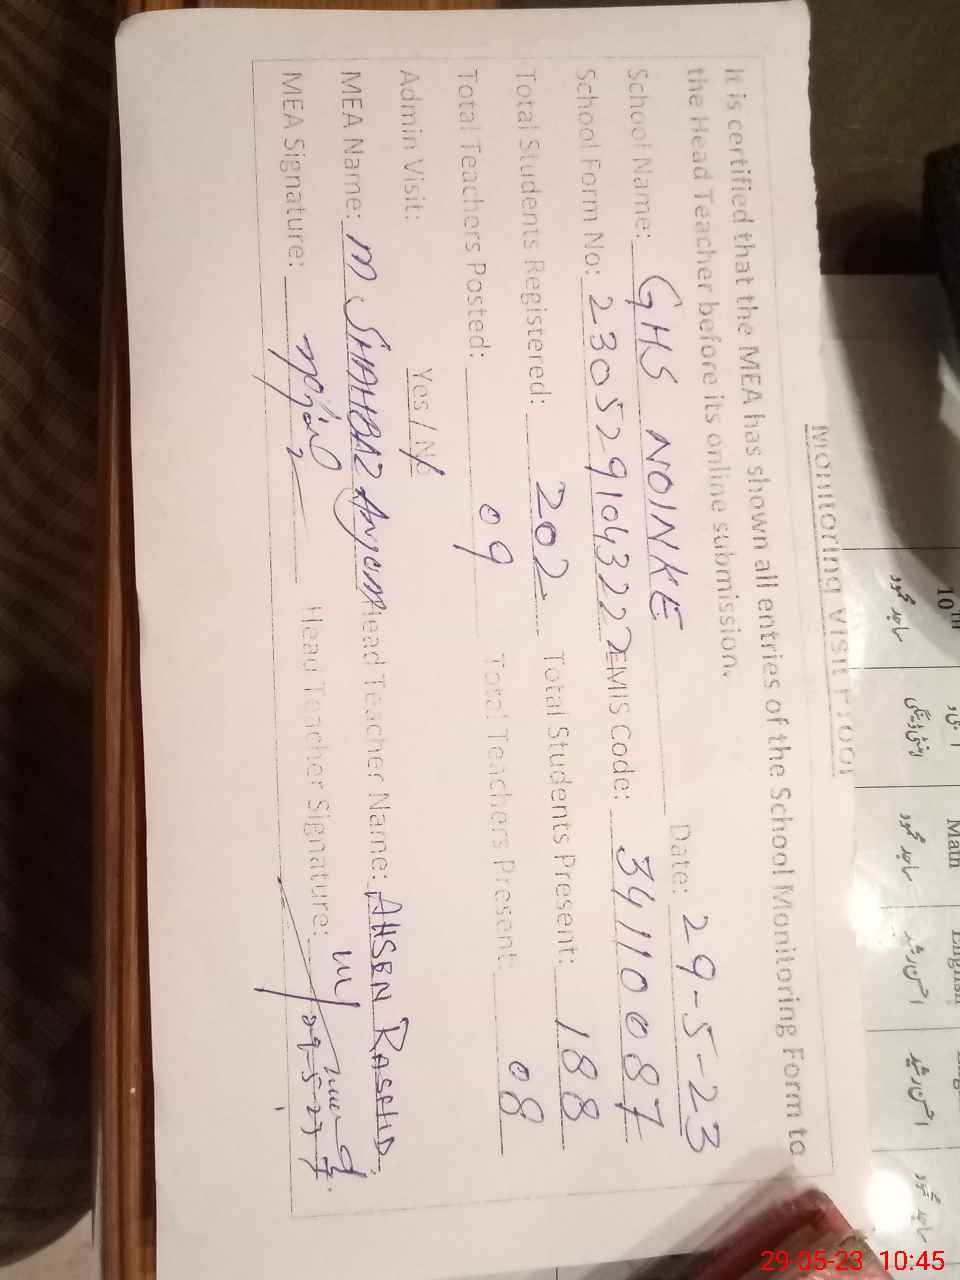 Monitoring Visit Proof
It is certified that the MEA has shown all entries of the School Monitoring Form to
the Head Teacher before its online submission.
School Name: GHS NOINKE Date: 29-5-23
School Form No: 230529104322 EMIS Code: 34110087
Total Students Registered: 202 Total Students Present: 188
Total Teachers Posted: 09 Total Teachers Present: 08
Admin Visit: Yes / No
MEA Name: M SHAHBAZ Anjum Head Teacher Name: AHSAN RASHID
MEA Signature: Head Teacher Signature:
29-5-23
10th
Math
English
ساجد محمود
ساجد محمود
احسن رشید
احسن رشید
ساجد محمود
29-05-23 10:45